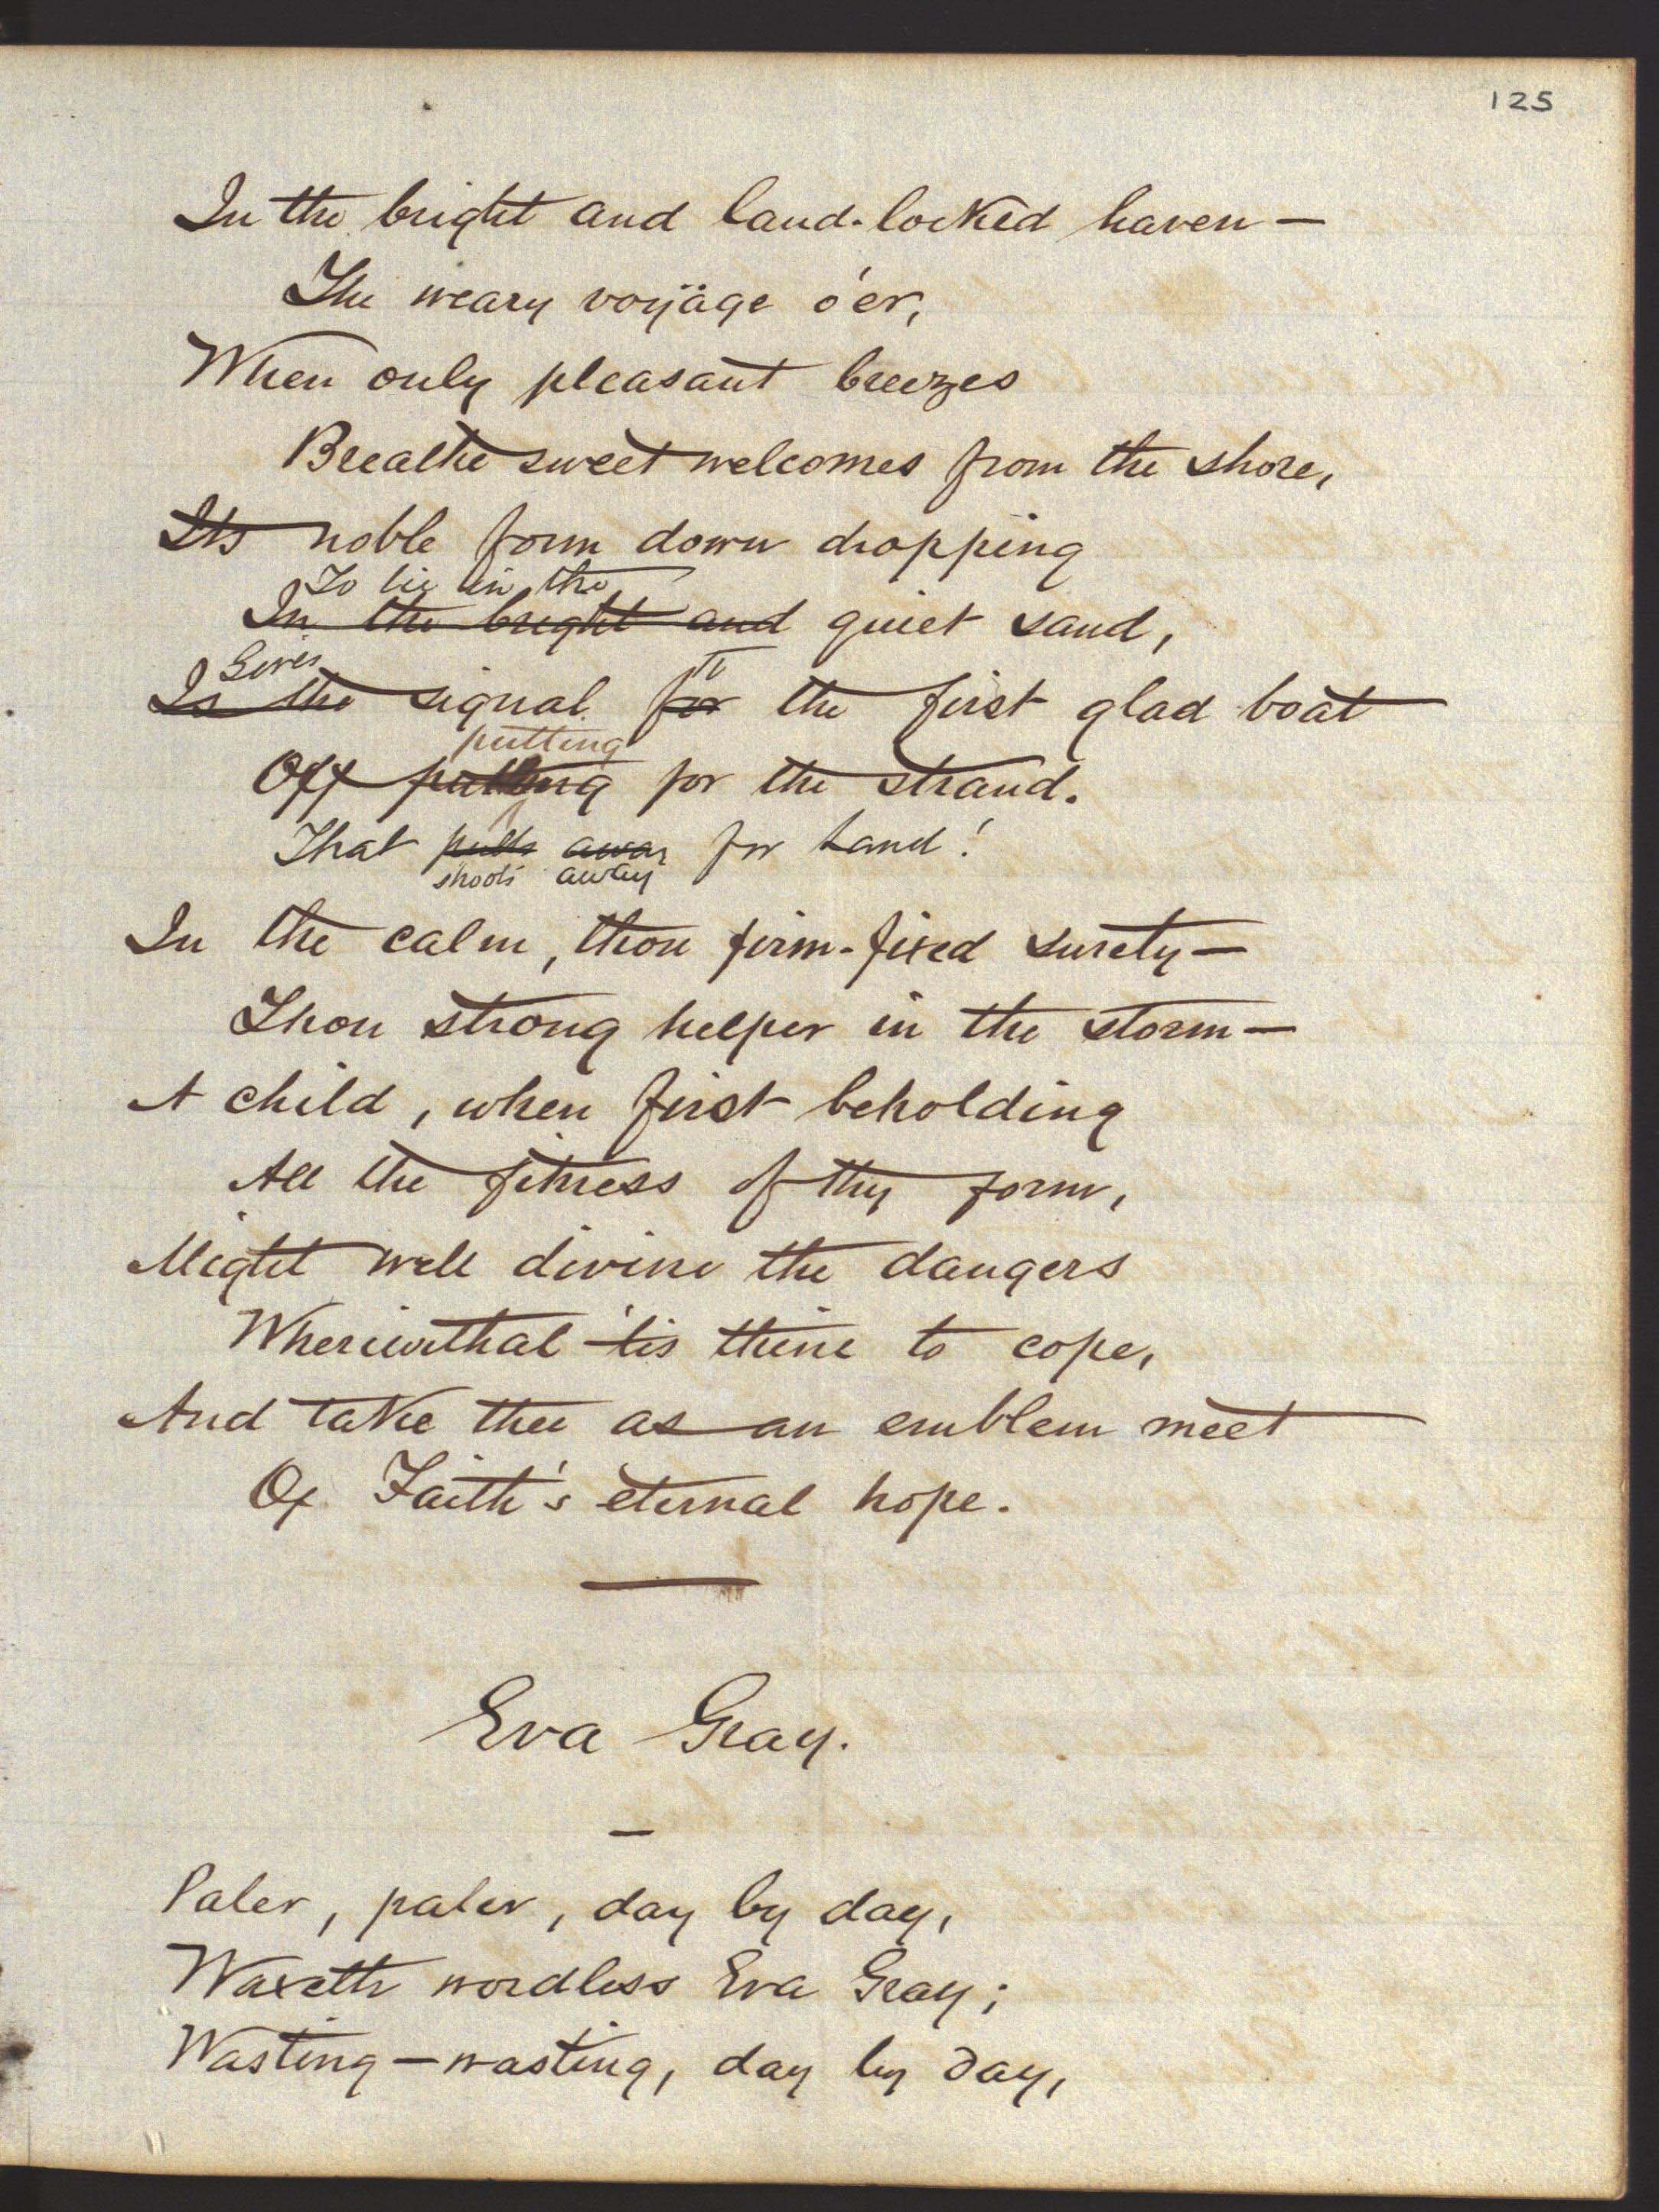 125
In the bright and land-locked haven —
The weary voyäge o'er,
When only pleasant breezes
Breathe sweet welcomes from the shore,
Its noble form down dropping
To lie in the
In the bright and quiet sand,
Gives
Is the signal for the first glad boat
putting
Off pulling for the strand.
That pulls away for land!
shoots away
In the calm, thou firm-fixed surety —
Thou strong helper in the storm —
A child, when first beholding
All the fitness of thy form,
Might well divine the dangers
Wherewithal 'tis thine to cope,
And take thee as an emblem meet
Of Faith's eternal hope.
Eva Gray.
Paler, paler, day by day,
Waxeth wordless Eva Gray;
Wasting — wasting, day by day,